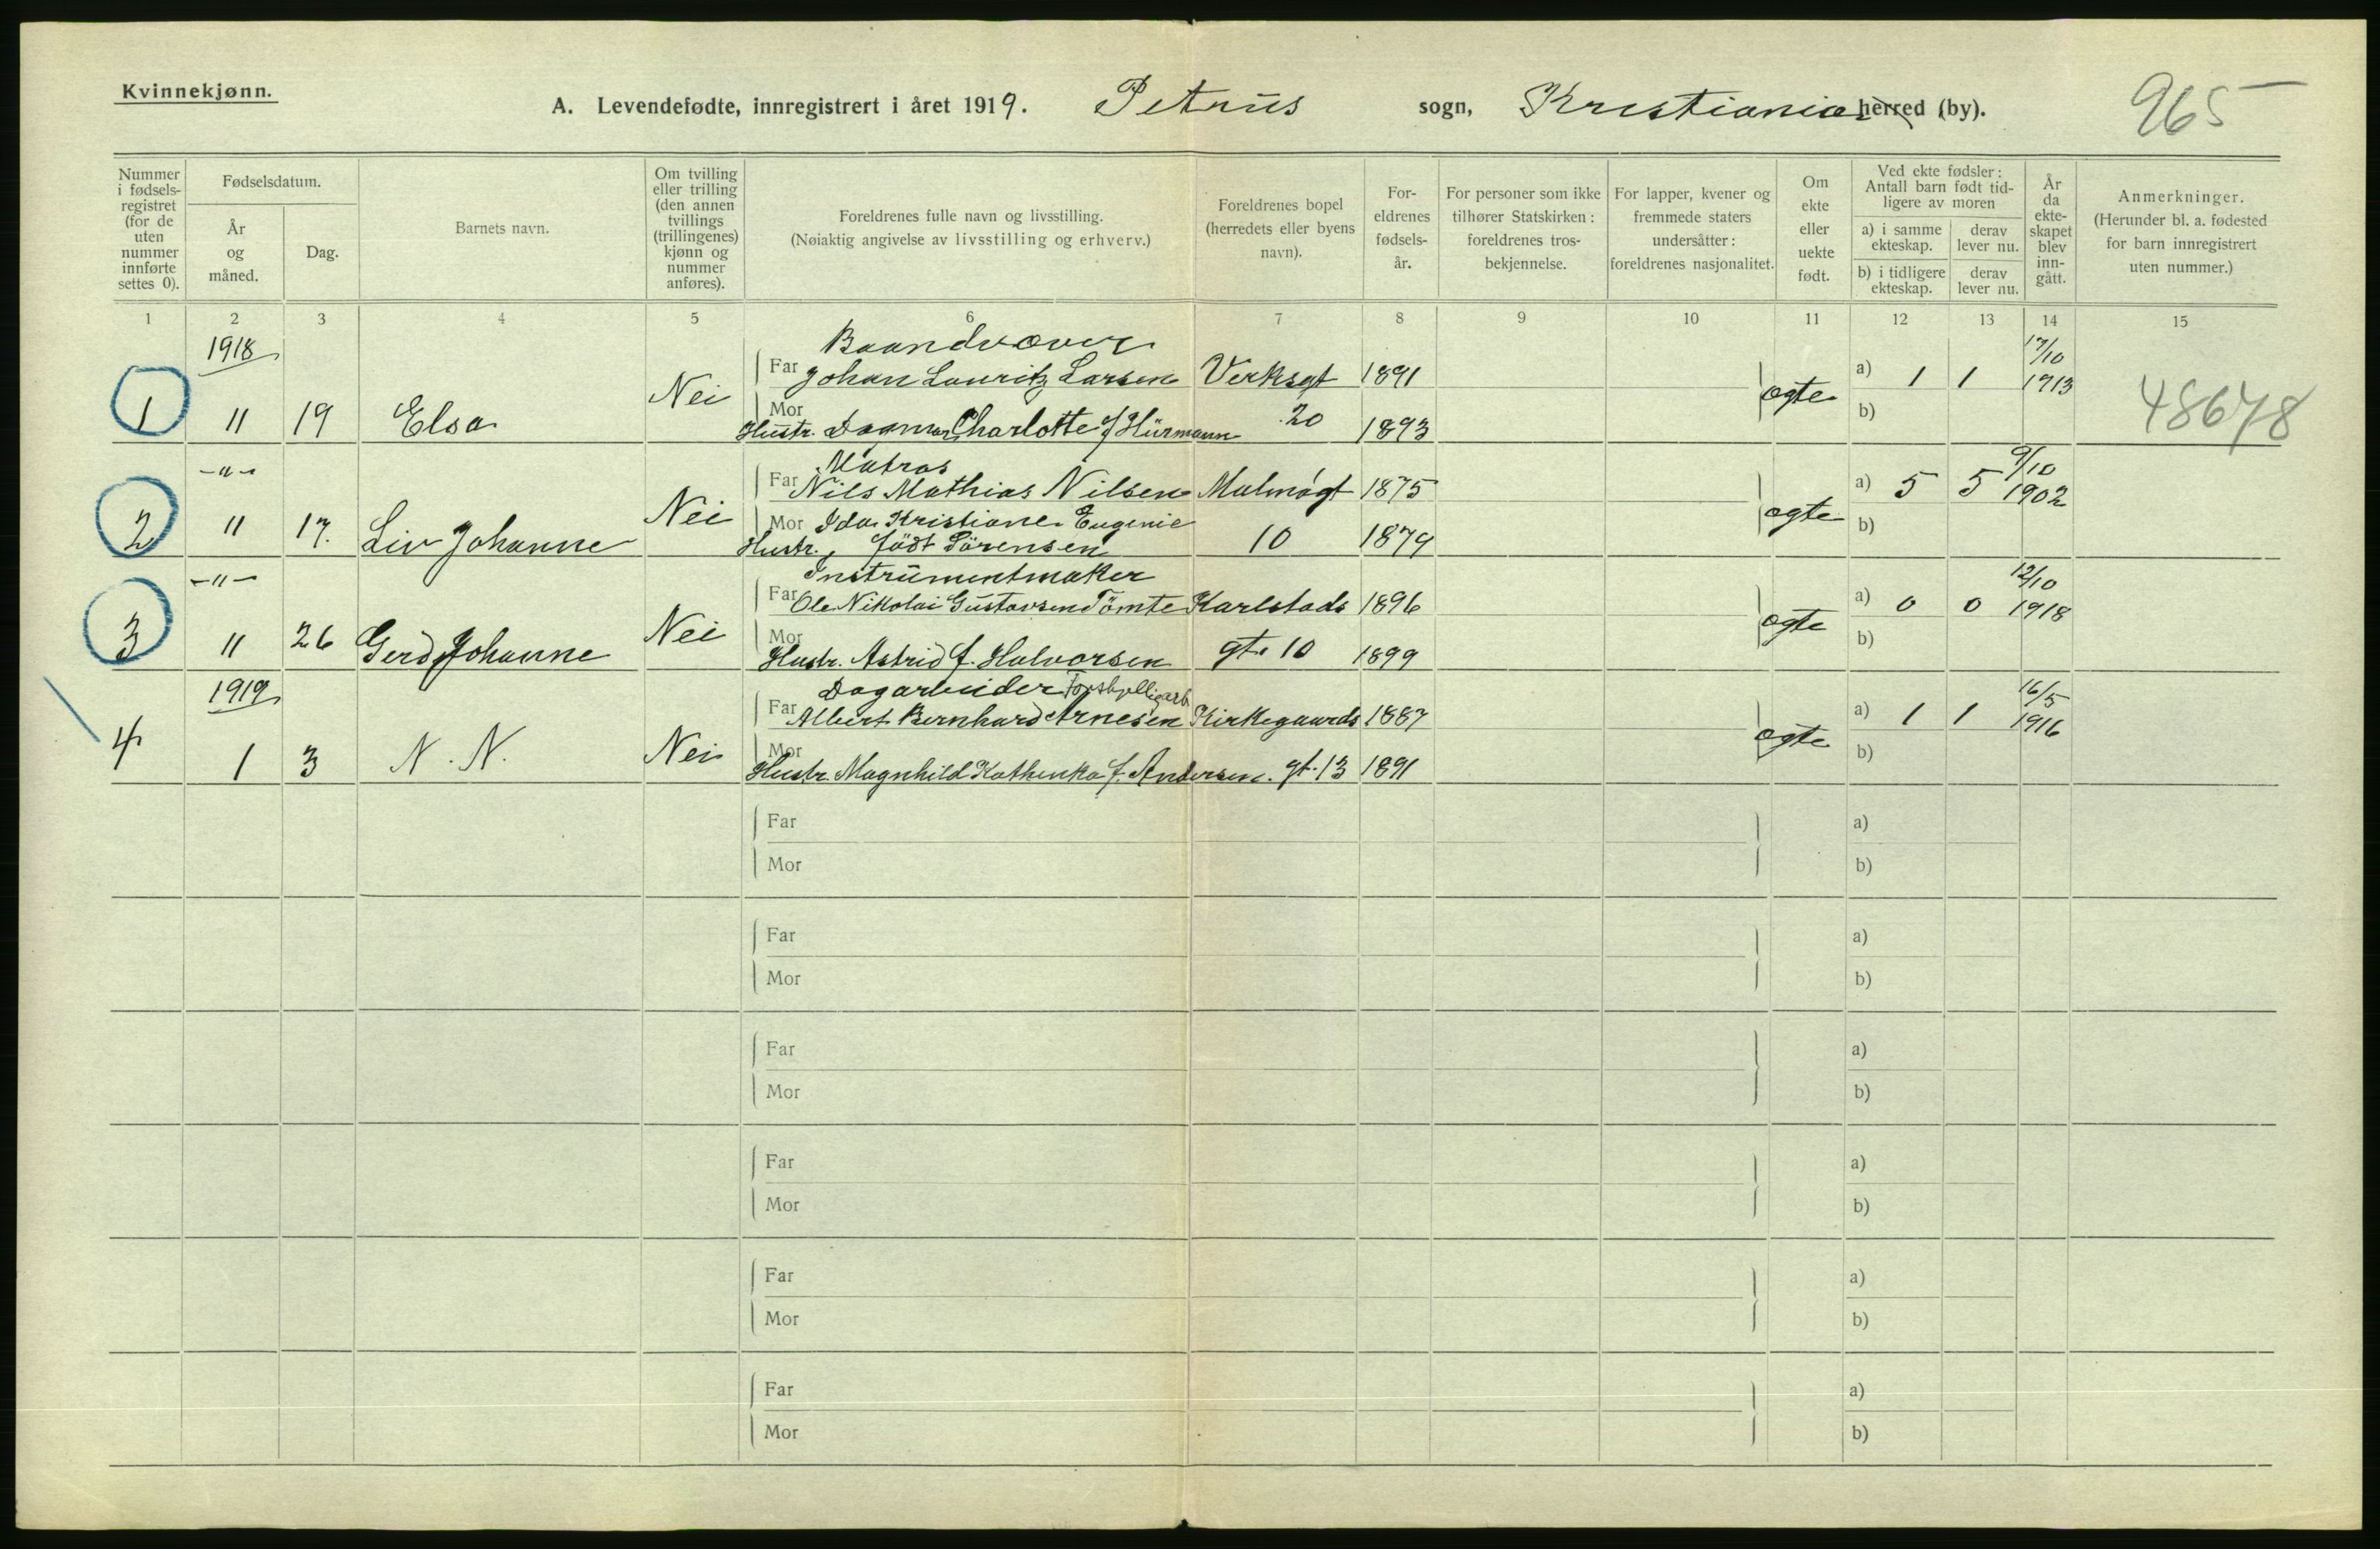 Kvinnekjønn.
A. Levendefødte, innregistrert i året 1919. Petrus sogn, Kristiania herred (by). 965
Nummer i fødsels-registret (for de uten nummer innførte settes 0).
Fødselsdatum.
År og måned.
Dag.
Barnets navn.
Om tvilling eller trilling (den annen tvillings (trillingenes) kjønn og nummer anføres).
Foreldrenes fulle navn og livsstilling.
(Nøiaktig angivelse av livsstilling og erhverv.)
Foreldrenes bopel (herredets eller byens navn).
For-eldrenes fødsels-år.
For personer som ikke tilhører Statskirken: foreldrenes tros-bekjennelse.
For lapper, kvener og fremmede staters undersåtter: foreldrenes nasjonalitet.
Om ekte eller uekte født.
Ved ekte fødsler: Antall barn født tid-ligere av moren
a) i samme ekteskap.
derav lever nu.
b) i tidligere ekteskap.
derav lever nu.
År da ekte-skapet blev inn-gått.
Anmerkninger.
(Herunder bl. a. fødested for barn innregistrert uten nummer.)
1 2 3 4 5 6 7 8 9 10 11 12 13 14 15
1918 Baandvæver 17/10
Far Johan Lauritz Larsen Verksgt 1891 a) 1 1 1913
1 11 19 Elsa Nei Mor Hustr. Dagmar Charlotte f Hürmann 20 1893 ægte b) 48678
-"- Matros 9/10
Far Nils Mathias Nilsen Malmøgt 1875 a) 5 5 1902
2 11 17. Liv Johanne Nei Mor Ida Kristiane Eugenie ægte b)
Hustr., född Sörensen 10 1879
-"- Instrumentmaker 12/10
Far Ole Nikolai Gustavsen Tömte Karlstads 1896 a) 0 0 1918
3 11 26 Gerd Johanne Nei Mor Hustr. Astrid f. Halvorsen gt. 10 1899 ægte b)
1919 Dagarbeider Forskjellig arb 16/5
Far Albert Bernhard Arnesen Kirkegaards 1887 a) 1 1 1916
4 1 3 N. N. Nei Mor Hustr. Magnhild Kathinka f. Andersen. gt. 13 1891 ægte b)
Far a)
Mor b)
Far a)
Mor b)
Far a)
Mor b)
Far a)
Mor b)
Far a)
Mor b)
Far a)
Mor b)